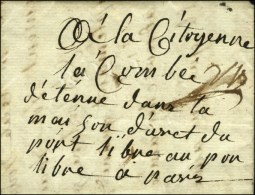 A la Citoyenne
la Combe
détenue dans la
maison d'arret du
port libre au por
libre a paris